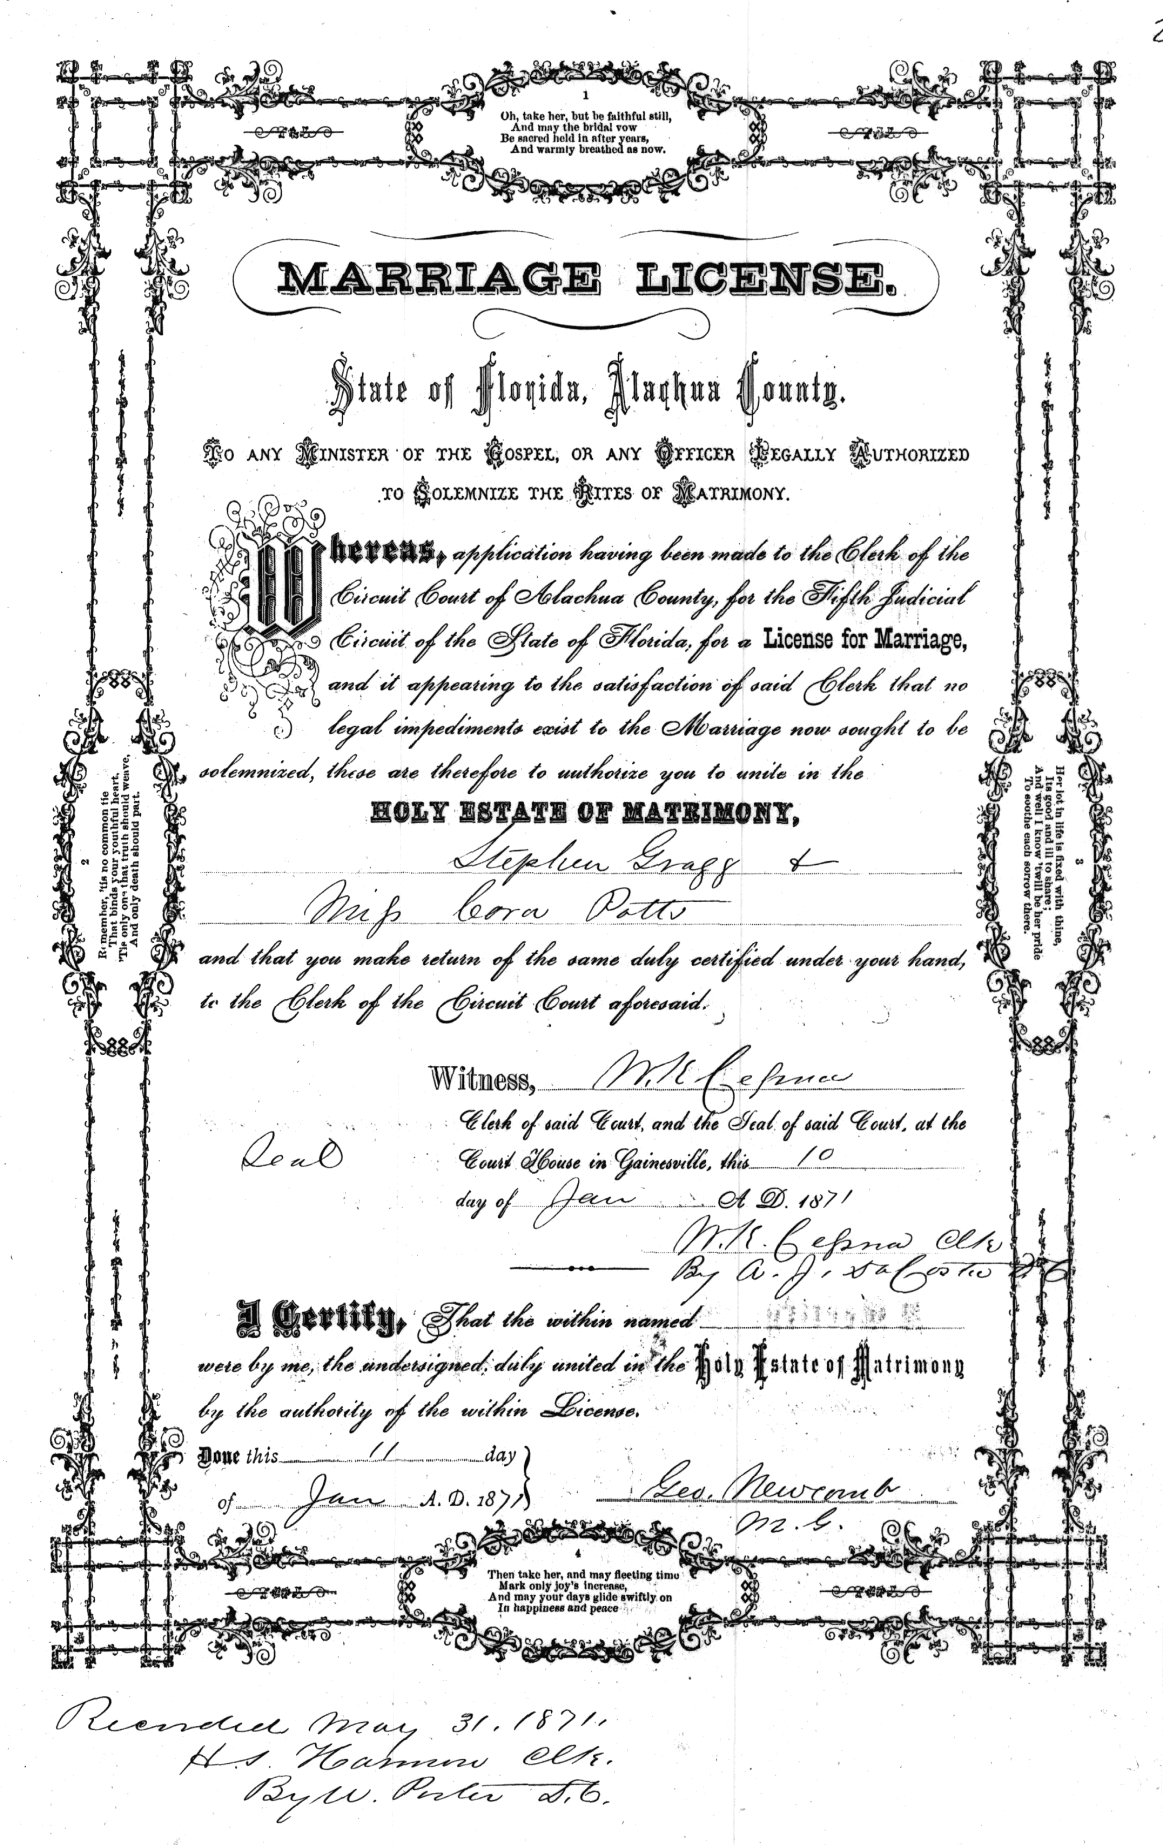 1
Oh, take her, but be faithful still,
And may the bridal vow
Be sacred held in after years,
And warmly breathed as now.
MARRIAGE LICENSE.
State of Florida, Alachua County.
TO ANY MINISTER OF THE GOSPEL, OR ANY OFFICER LEGALLY AUTHORIZED
TO SOLEMNIZE THE RITES OF MATRIMONY.
Whereas, application having been made to the Clerk of the
Circuit Court of Alachua County, for the Fifth Judicial
Circuit of the State of Florida, for a License for Marriage,
and it appearing to the satisfaction of said Clerk that no
legal impediments exist to the Marriage now sought to be
solemnized, these are therefore to authorize you to unite in the
HOLY ESTATE OF MATRIMONY,
Stephen Gragg &
Miss Cora Potts
and that you make return of the same duly certified under your hand,
to the Clerk of the Circuit Court aforesaid.
2
Remember, 'tis no common tie
That binds your youthful heart,
'Tis only one that truth should weave,
And only death should part.
3
Her lot in life is fixed with thine,
Its good and ill to share;
And well I know 'twill be her pride
To soothe each sorrow there.
Witness, W. K. Cessna
Clerk of said Court, and the Seal of said Court, at the
Seal
Court House in Gainesville, this 10
day of Jan A. D. 1871
W. K. Cessna Clk
By A. J. DaCosta D C
I Certify, That the within named
were by me, the undersigned, duly united in the Holy Estate of Matrimony
by the authority of the within License.
Done this 11 day
of Jan A. D. 1871
Geo. Newcomb
M. G.
4
Then take her, and may fleeting time
Mark only joy's increase,
And may your days glide swiftly on
In happiness and peace
Recorded May 31. 1871.
H. S. Harmon Clk.
By W. Porter D. C.